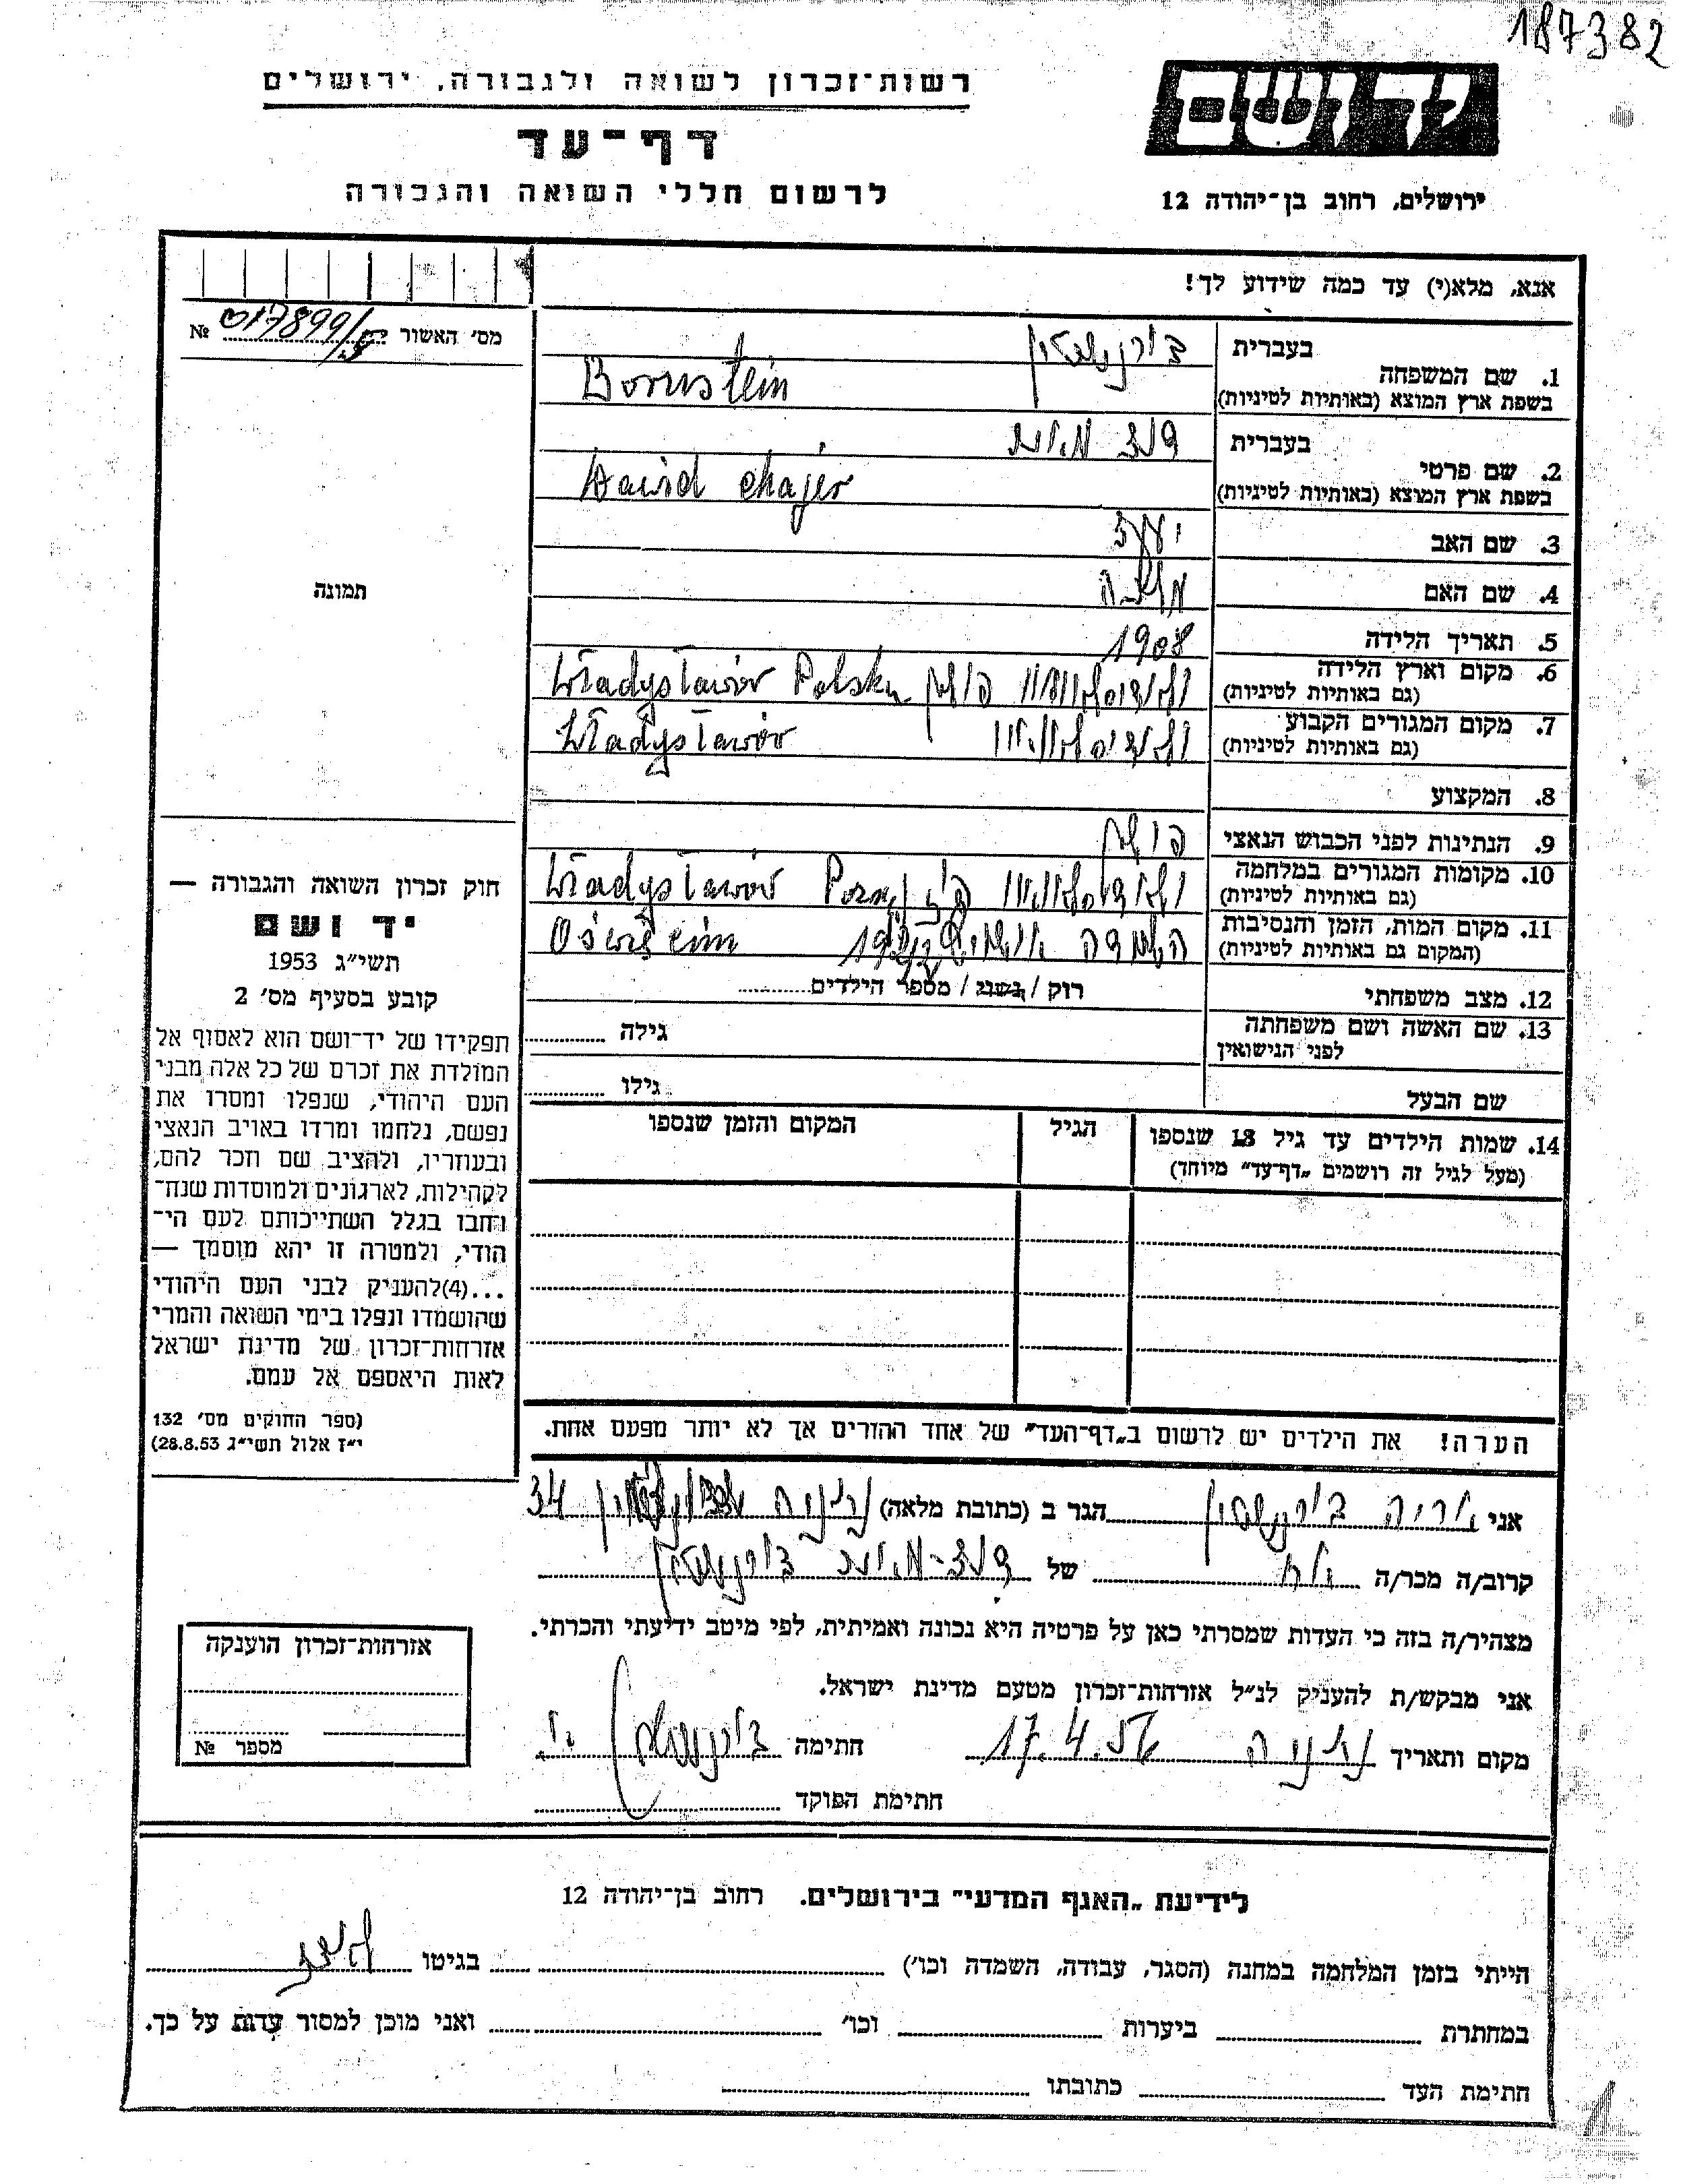 187382
רשות־זכרון לשואה ולגבורה, ירושלים
יד ושם
דף־עד
לרשום חללי השואה והגבורה
ירושלים, רחוב בן־יהודה 12
אנא, מלא(י) עד כמה שידוע לך!
מס׳ האשור № 017899/
תמונה
1. שם המשפחה
בעברית בורנשטין
בשפת ארץ המוצא (באותיות לטיניות) Bornstein
2. שם פרטי
בעברית דוד
בשפת ארץ המוצא (באותיות לטיניות) Dawid Chajer
3. שם האב יעקב
4. שם האם
5. תאריך הלידה 1908
6. מקום וארץ הלידה
(גם באותיות לטיניות) פולין Władysławów Polska
7. מקום המגורים הקבוע
(גם באותיות לטיניות) Władysławów
8. המקצוע
9. הנתינות לפני הכבוש הנאצי פולין
10. מקומות המגורים במלחמה
(גם באותיות לטיניות) Władysławów
11. מקום המות, הזמן והנסיבות
(המקום גם באותיות לטיניות) השמדה
12. מצב משפחתי רוק / נשוי / מספר הילדים
13. שם האשה ושם משפחתה
לפני הנישואין גילה
שם הבעל גילו
14. שמות הילדים עד גיל 18 שנספו הגיל המקום והזמן שנספו
(מעל לגיל זה רושמים „דף־עד״ מיוחד)
הערה! את הילדים יש לרשום ב„דף־העד״ של אחד ההורים אך לא יותר מפעם אחת.
חוק זכרון השואה והגבורה —
יד ושם
תשי״ג 1953
קובע בסעיף מס׳ 2
תפקידו של יד־ושם הוא לאסוף אל
המולדת את זכרם של כל אלה מבני
העם היהודי, שנפלו ומסרו את
נפשם, נלחמו ומרדו באויב הנאצי
ובעוזריו, ולהציב שם וזכר להם,
לקהילות, לארגונים ולמוסדות שנח־
רחבו בגלל השתייכותם לעם הי־
הודי, ולמטרה זו יהא מוסמך —
...(4)להעניק לבני העם היהודי
שהושמדו ונפלו בימי השואה והמרי
אזרחות־זכרון של מדינת ישראל
לאות היאספם אל עמם.
(ספר החוקים מס׳ 132
י״ז אלול תשי״ג 28.8.53)
אני אריה בורנשטין הגר ב (כתובת מלאה) נתניה 34
קרוב/ה מכר/ה אח של בורנשטין
מצהיר/ה בזה כי העדות שמסרתי כאן על פרטיה היא נכונה ואמיתית, לפי מיטב ידיעתי והכרתי.
אני מבקש/ת להעניק לנ״ל אזרחות־זכרון מטעם מדינת ישראל.
מקום ותאריך נתניה 17.4.56 חתימה בורנשטין א.
חתימת הפוקד
אזרחות־זכרון הוענקה
מספר №
לידיעת „האגף המדעי״ בירושלים. רחוב בן־יהודה 12
הייתי בזמן המלחמה במחנה (הסגר, עבודה, השמדה וכו׳) בגיטו
במחתרת ביערות וכו׳ ואני מוכן למסור עדות על כך.
חתימת העד כתובתו